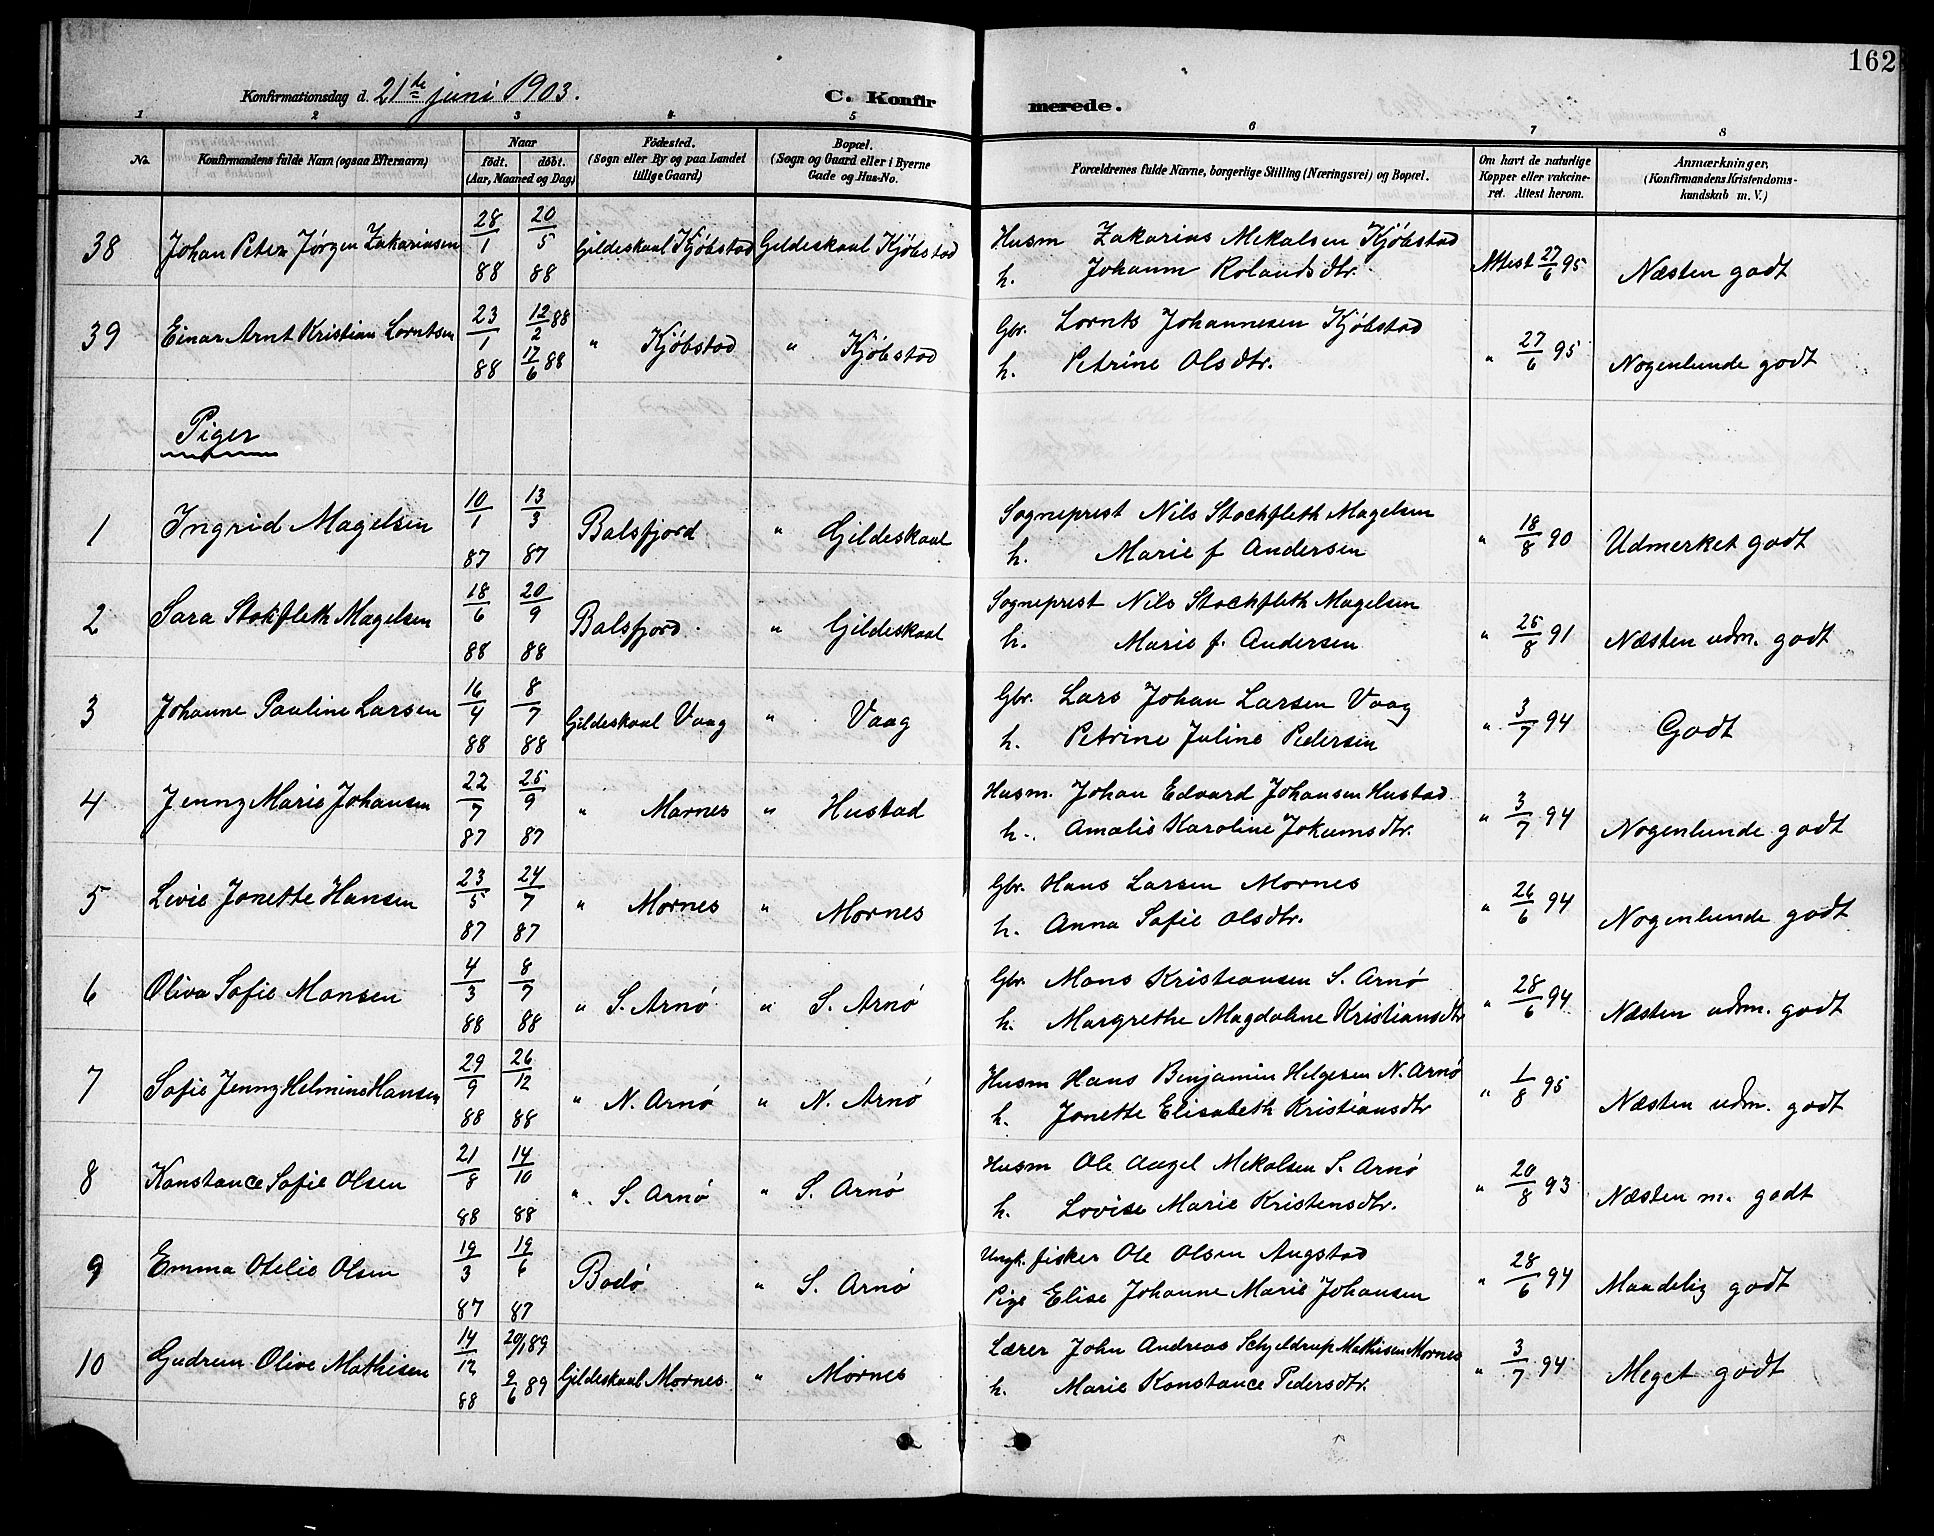 162
Konfirmationsdag d. 21de juni 1903.
C. Konfirmerede.
1 2 3 4 5 6 7 8
No. Konfirmandens fulde Navn (ogsaa Efternavn) Naar født. døbt. (Aar, Maaned og Dag) Fødested. (Sogn eller By og paa Landet tillige Gaard) Bopæl. (Sogn og Gaard eller i Byerne Gade og Hus-No. Forældrenes fulde Navne, borgerlige Stilling (Næringsvei) og Bopæl. Om havt de naturlige Kopper eller vakcineret. Attest herom. Anmærkninger. (Konfirmandens Kristendomskundskab m. V.)
38 Johan Peter Jørgen Zakariasen 28/1 88 20/5 88 Gildeskaal Kjøbstad Gildeskaal Kjøbstad Husm Zakarias Mekalsen Kjøbstad Attest 27/6 95 Næsten godt
h. Johanna Rolandsdtr.
39 Einar Arnt Kristian Lorntsen 23/1 88 12/2 88 17/6 88 " Kjøbstad " Kjøbstad Gbr. Lornts Johannesen Kjøbstad " 27/6 95 Nogenlunde godt
h. Petrine Olsdtr.
Piger
1 Ingrid Magelsen 10/1 87 13/3 87 Balsfjord " Gildeskaal Sogneprest Nils Stockfleth Magelsen " 18/8 90 Udmerket godt
h. Marie f Andersen
2 Sara Stokfleth Magelsen 18/6 88 20/9 88 Balsfjord " Gildeskaal Sogneprest Nils Stockfleth Magelsen " 25/8 91 Næsten udm. godt
h. Marie f. Andersen
3 Johanne Pauline Larsen 16/4 88 8/7 88 Gildeskaal Vaag " Vaag Gbr. Lars Johan Larsen Vaag " 3/7 94 Godt
h. Petrine Juline Pedersen
4 Jenny Marie Johansen 22/7 87 25/9 87 " Marnes " Hustad Husm. Johan Edvard Johansen Hustad " 3/7 94 Nogenlunde godt
h. Amalie Karoline Jokumsdtr.
5 Levie Jonette Hansen 23/5 87 24/7 87 " Mornes " Mornes Gbr. Hans Larsen Mornes " 26/6 94 Nogenlunde godt
h. Anna Sofie Olsdtr.
6 Oliva Sofie Monsen 4/3 88 8/7 88 " S. Arnø " S. Arnø Gbr. Mons Kristiansen S. Arnø " 28/6 94 Næsten udm. godt
h. Margrethe Magdalene Kristiansdtr
7 Sofie Jenny Helmine Hansen 29/9 88 26/12 88 " N. Arnø " N. Arnø Husm Hans Benjamin Helgesen N. Arnø " 1/8 95 Næsten udm. godt
h. Jonette Elisabeth Kristiansdtr
8 Konstance Sofie Olsen 21/8 88 14/10 88 " S. Arnø " S. Arnø Husm Ole Angel Mekalsen S. Arnø " 20/8 93 Næsten m. godt
h. Lovise Marie Kristensdtr.
9 Emma Otelie Olsen 19/3 87 19/6 87 Bodø " S. Arnø Ungk. fisker Ole Olsen Augstad " 28/6 94 Maadelig godt
Pige Elise Johanne Marie Johansen
10 Gudrun Olive Mathisen 14/12 88 20/1 89 2/6 89 Gildeskaal Mornes " Mornes Lærer John Andreas Schjeldrup Mathisen Mornes " 3/7 94 Meget godt
h. Marie Konstance Pedersdtr.